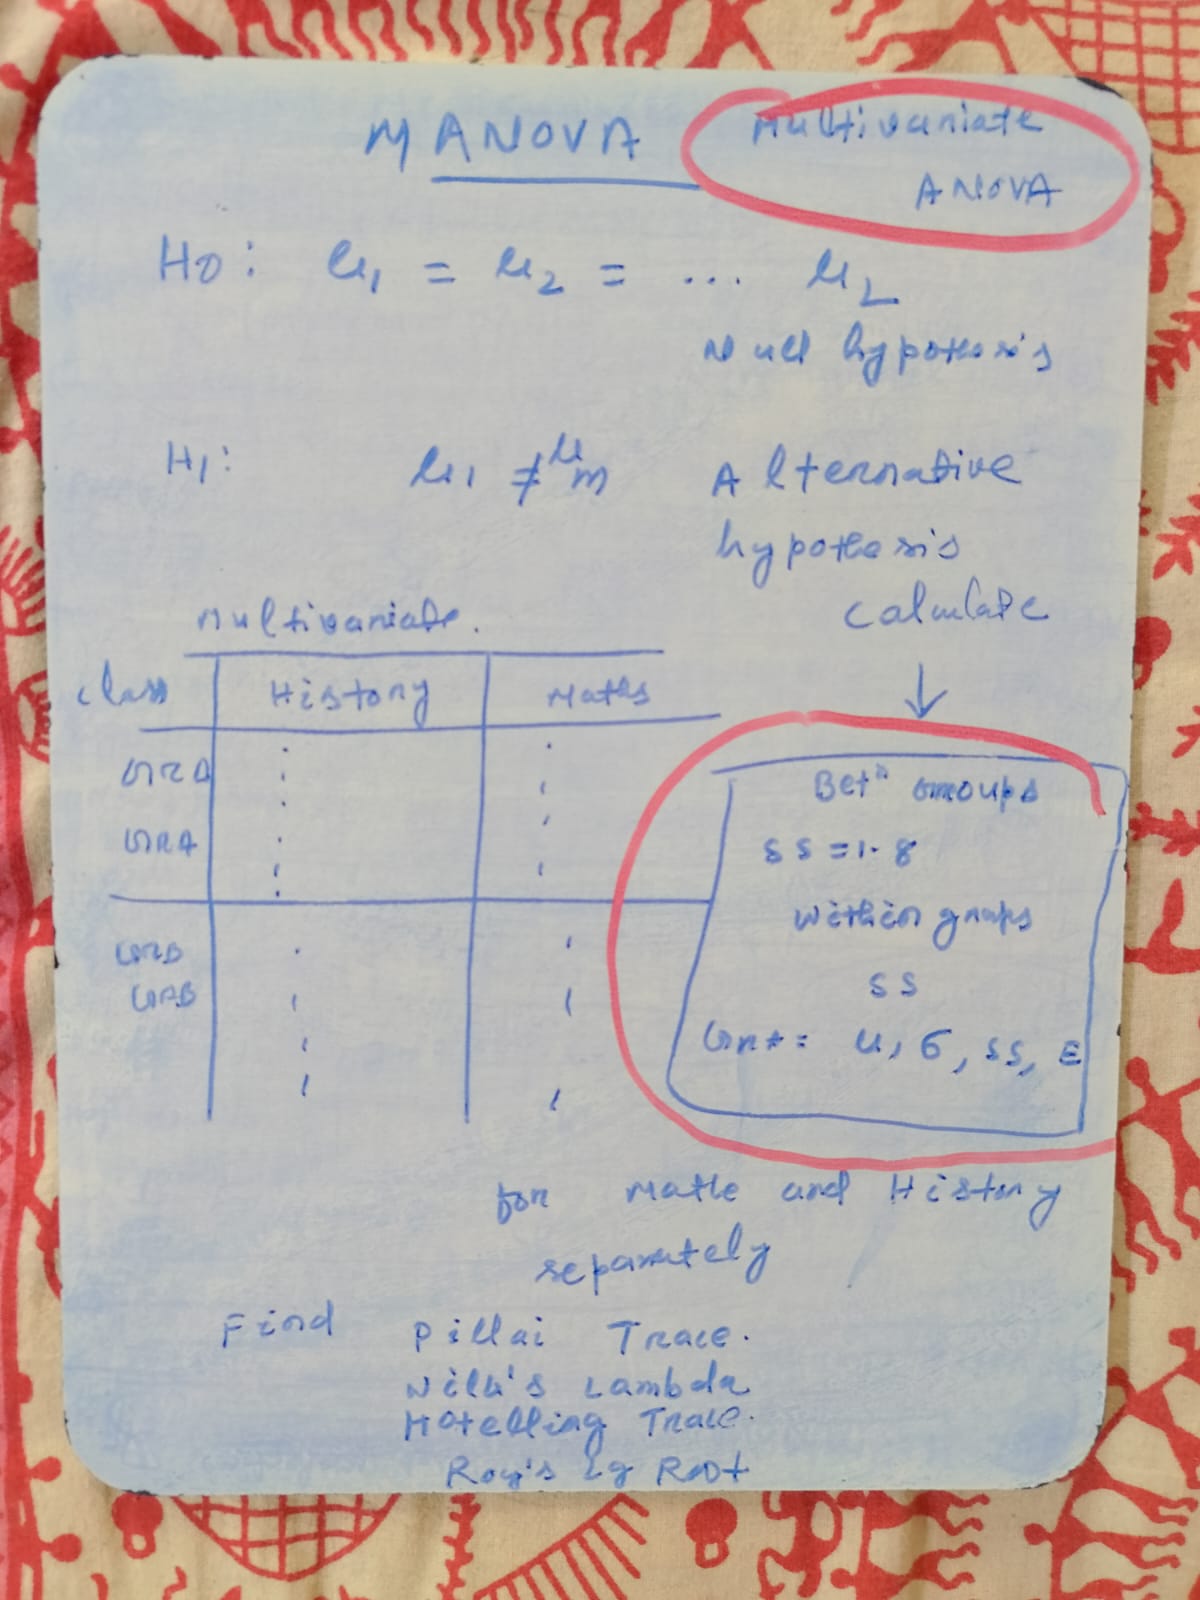 MANOVA
Multivariate
ANOVA
H0: μ1 = μ2 = ... μL
Null hypothesis
H1: μ1 ≠ μm
Alternative
hypothesis
calculate
↓
Multivariate.
Class History Maths
GRA
GRA
GRB
GRB
Betn Groups
SS = 1.8
Within groups
SS
μ, σ, SS, ε
for Maths and History
separately
Find Pillai Trace.
Wilk's Lambda
Hotelling Trace.
Roy's Lg Root